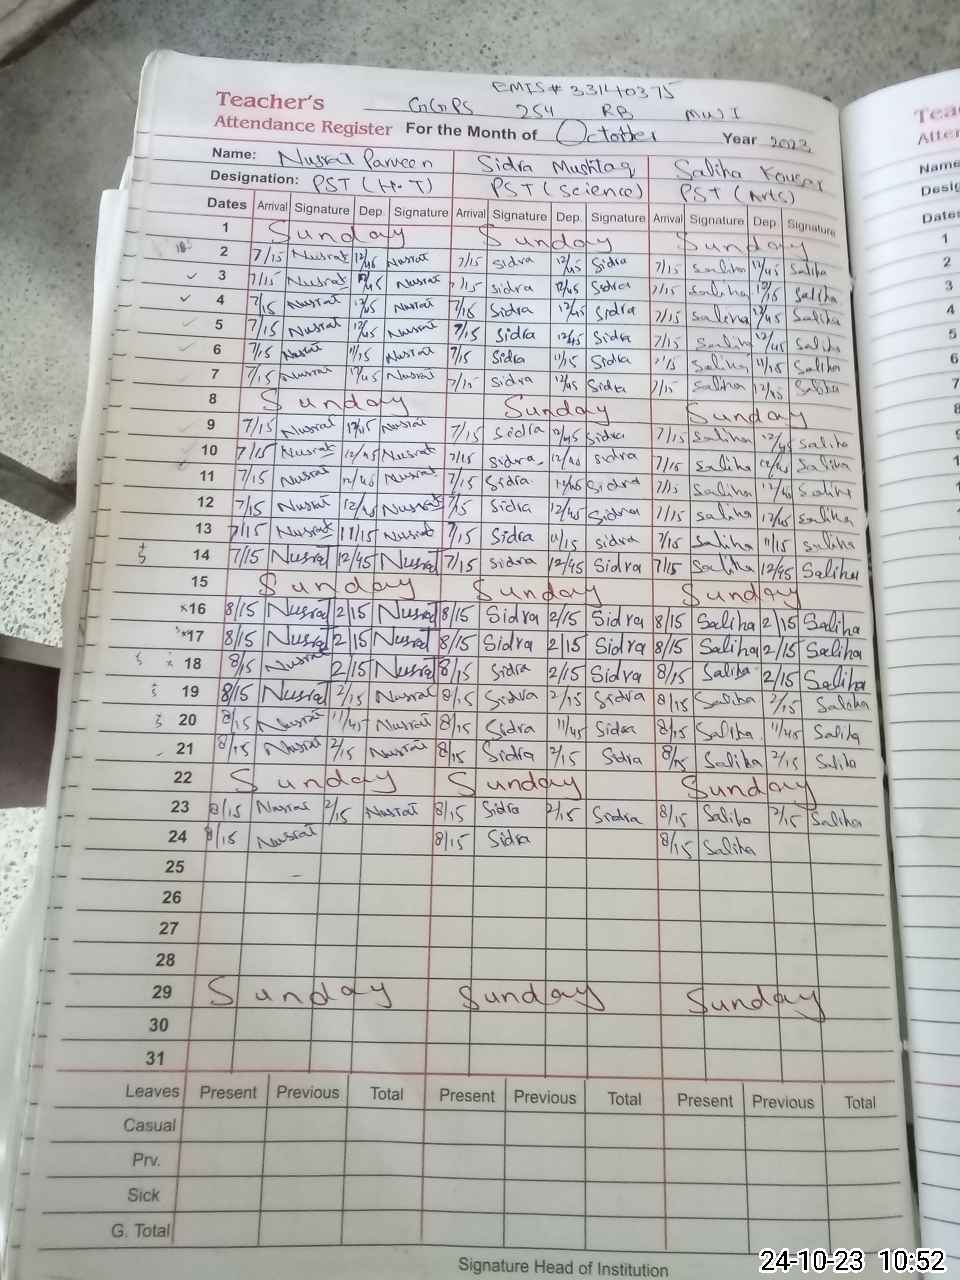 EMIS# 33140375
Teacher's GGPS 254 RB MWI
Attendance Register For the Month of October Year 2023
Name: Nusrat Parveen Sidra Mushtaq Saliha Kousar
Designation: PST (H.T) PST (Science) PST (Arts)
Dates Arrival Signature Dep. Signature Arrival Signature Dep. Signature Arrival Signature Dep. Signature
1 Sunday Sunday Sunday
2 7/15 Nusrat 12/45 Nusrat 7/15 Sidra 12/45 Sidra 7/15 Saliha 12/45 Saliha
3 7/15 Nusrat 12/45 Nusrat 7/15 Sidra 12/45 Sidra 7/15 Saliha 12/15 Saliha
4 7/15 Nusrat 12/45 Nusrat 7/15 Sidra 12/45 Sidra 7/15 Saliha 12/45 Saliha
5 7/15 Nusrat 12/45 Nusrat 7/15 Sidra 12/45 Sidra 7/15 Saliha 12/45 Saliha
6 7/15 Nusrat 11/15 Nusrat 7/15 Sidra 11/15 Sidra 7/15 Saliha 11/15 Saliha
7 7/15 Nusrat 12/45 Nusrat 7/15 Sidra 12/45 Sidra 7/15 Saliha 12/45 Saliha
8 Sunday Sunday Sunday
9 7/15 Nusrat 12/45 Nusrat 7/15 Sidra 12/45 Sidra 7/15 Saliha 12/45 Saliha
10 7/15 Nusrat 12/45 Nusrat 7/15 Sidra 12/45 Sidra 7/15 Saliha 12/45 Saliha
11 7/15 Nusrat 12/45 Nusrat 7/15 Sidra 12/45 Sidra 7/15 Saliha 12/45 Saliha
12 7/15 Nusrat 12/45 Nusrat 7/15 Sidra 12/45 Sidra 7/15 Saliha 12/45 Saliha
13 7/15 Nusrat 11/15 Nusrat 7/15 Sidra 11/15 Sidra 7/15 Saliha 11/15 Saliha
14 7/15 Nusrat 12/45 Nusrat 7/15 Sidra 12/45 Sidra 7/15 Saliha 12/45 Saliha
15 Sunday Sunday Sunday
16 8/15 Nusrat 2/15 Nusrat 8/15 Sidra 2/15 Sidra 8/15 Saliha 2/15 Saliha
17 8/15 Nusrat 2/15 Nusrat 8/15 Sidra 2/15 Sidra 8/15 Saliha 2/15 Saliha
18 8/15 Nusrat 2/15 Nusrat 8/15 Sidra 2/15 Sidra 8/15 Saliha 2/15 Saliha
19 8/15 Nusrat 2/15 Nusrat 8/15 Sidra 2/15 Sidra 8/15 Saliha 2/15 Saleha
20 8/15 Nusrat 11/45 Nusrat 8/15 Sidra 11/45 Sidra 8/15 Saliha 11/45 Saliha
21 8/15 Nusrat 2/15 Nusrat 8/15 Sidra 2/15 Sidra 8/15 Saliha 2/15 Saliha
22 Sunday Sunday Sunday
23 8/15 Nusrat 2/15 Nusrat 8/15 Sidra 2/15 Sidra 8/15 Saliha 2/15 Saliha
24 8/15 Nusrat 8/15 Sidra 8/15 Saliha
25
26
27
28
29 Sunday Sunday Sunday
30
31
Leaves Present Previous Total Present Previous Total Present Previous Total
Casual
Prv.
Sick
G. Total
Signature Head of Institution
24-10-23 10:52